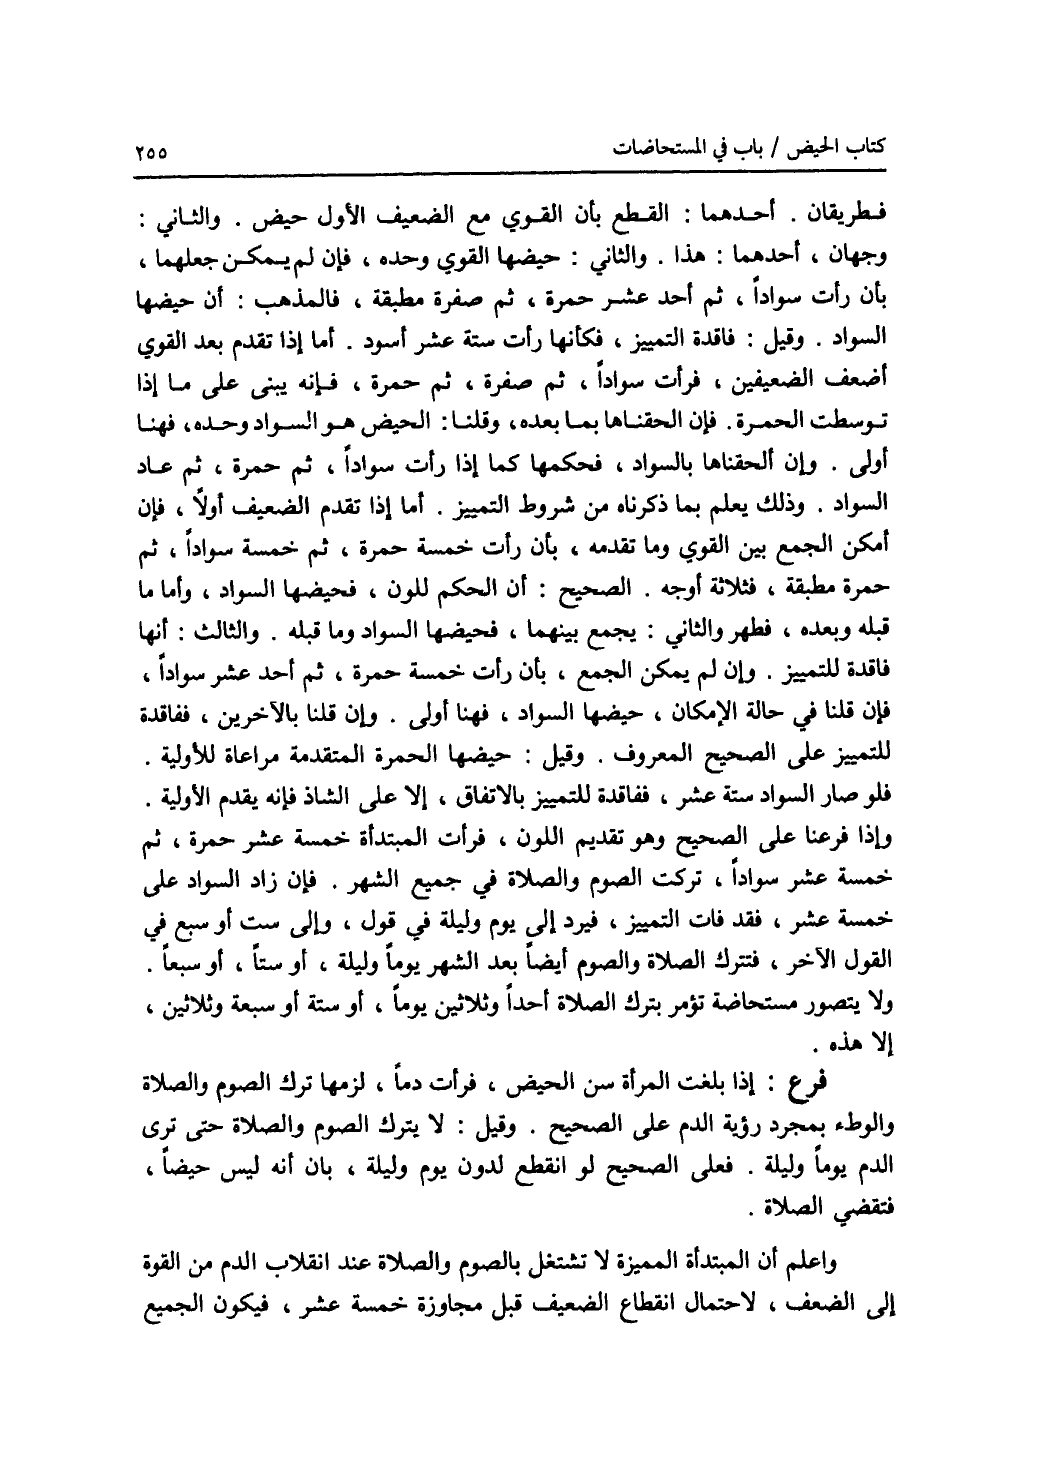 كتاب الحيض / باب في المستحاضات ٢٥٥
فطريقان . أحدهما : القطع بأن القوي مع الضعيف الأول حيض . والثاني :
وجهان ، أحدهما : هذا . والثاني : حيضها القوي وحده ، فإن لم يمكن جعلهما ،
بأن رأت سواداً ، ثم أحد عشر حمرة ، ثم صفرة مطبقة ، فالمذهب : أن حيضها
السواد . وقيل : فاقدة التمييز ، فكأنها رأت ستة عشر أسود . أما إذا تقدم بعد القوي
أضعف الضعيفين ، فرأت سواداً ، ثم صفرة ، ثم حمرة ، فإنه يبنى على ما إذا
توسطت الحمرة . فإن الحقناها بما بعده ، وقلنا : الحيض هو السواد وحده ، فهنا
أولى . وإن ألحقناها بالسواد ، فحكمها كما إذا رأت سواداً ، ثم حمرة ، ثم عاد
السواد . وذلك يعلم بما ذكرناه من شروط التمييز . أما إذا تقدم الضعيف أولاً ، فإن
أمكن الجمع بين القوي وما تقدمه ، بأن رأت خمسة حمرة ، ثم خمسة سواداً ، ثم
حمرة مطبقة ، فثلاثة أوجه . الصحيح : أن الحكم للون ، فحيضها السواد ، وأما ما
قبله وبعده ، فطهر والثاني : يجمع بينهما ، فحيضها السواد وما قبله . والثالث : أنها
فاقدة للتمييز . وإن لم يمكن الجمع ، بأن رأت خمسة حمرة ، ثم أحد عشر سواداً ،
فإن قلنا في حالة الإمكان ، حيضها السواد ، فهنا أولى . وإن قلنا بالآخرين ، ففاقدة
للتمييز على الصحيح المعروف . وقيل : حيضها الحمرة المتقدمة مراعاة للأولية .
فلو صار السواد ستة عشر ، ففاقدة للتمييز بالاتفاق ، إلا على الشاذ فإنه يقدم الأولية .
وإذا فرعنا على الصحيح وهو تقديم اللون ، فرأت المبتدأة خمسة عشر حمرة ، ثم
خمسة عشر سواداً ، تركت الصوم والصلاة في جميع الشهر . فإن زاد السواد على
خمسة عشر ، فقد فات التمييز ، فيرد إلى يوم وليلة في قول ، وإلى ست أو سبع في
القول الآخر ، فتترك الصلاة والصوم أيضاً بعد الشهر يوماً وليلة ، أو ستاً ، أو سبعاً .
ولا يتصور مستحاضة تؤمر بترك الصلاة أحداً وثلاثين يوماً ، أو ستة أو سبعة وثلاثين ،
إلا هذه .
فرع : إذا بلغت المرأة سن الحيض ، فرأت دماً ، لزمها ترك الصوم والصلاة
والوطء بمجرد رؤية الدم على الصحيح . وقيل : لا يترك الصوم والصلاة حتى ترى
الدم يوماً وليلة . فعلى الصحيح لو انقطع لدون يوم وليلة ، بان أنه ليس حيضاً ،
فتقضي الصلاة .
واعلم أن المبتدأة المميزة لا تشتغل بالصوم والصلاة عند انقلاب الدم من القوة
إلى الضعف ، لاحتمال انقطاع الضعيف قبل مجاوزة خمسة عشر ، فيكون الجميع